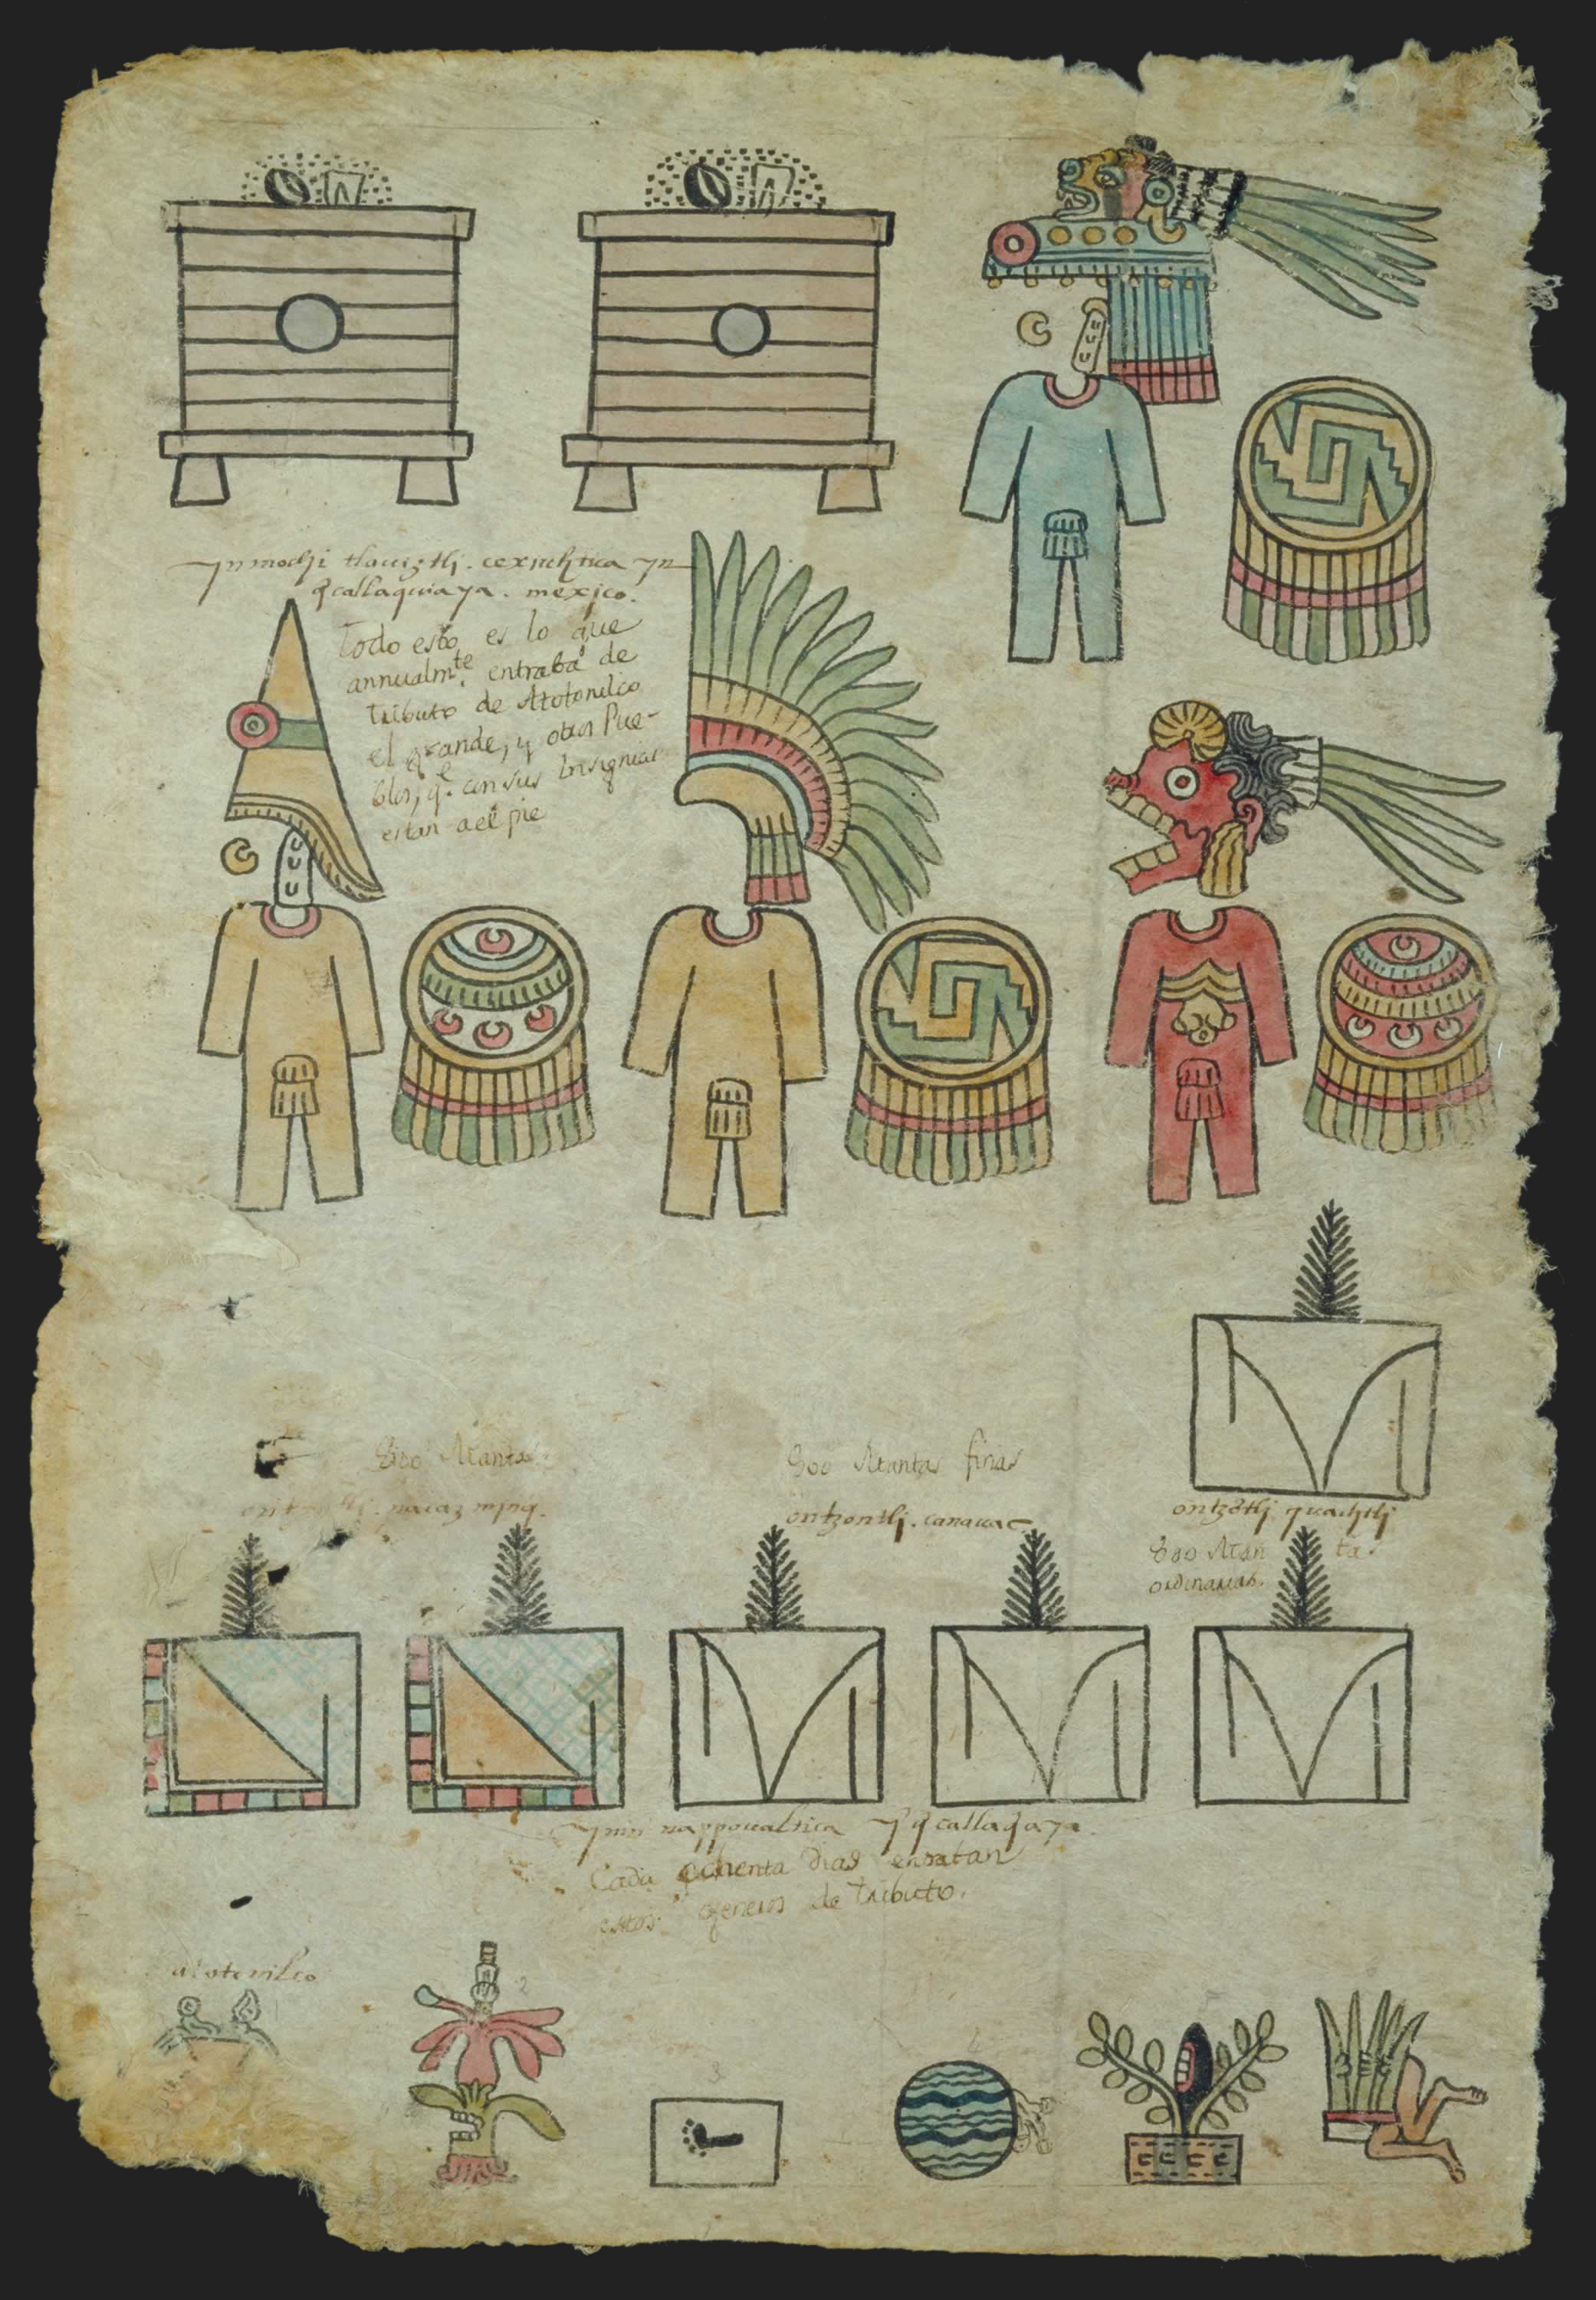 yn mochi tlauiztli. cexiuhtica yn
q̄callaquiaya. mexico.
Todo esto es lo que
annualmte. entraba de
tributo de Atotonilco
el grande, y otros Pue-
blos, q.e con sus Insignias
estan a el pie
800 Mantas.
800 Mantas finas
ontzontli. canauac
ontzōtli quachtli
800 Man ta.
ordinarias.
yn nappoualtica yn q̄callaq̄aya.
Cada ochenta dias entraban
estos generos de tributo.
atotonilco
2
3
4